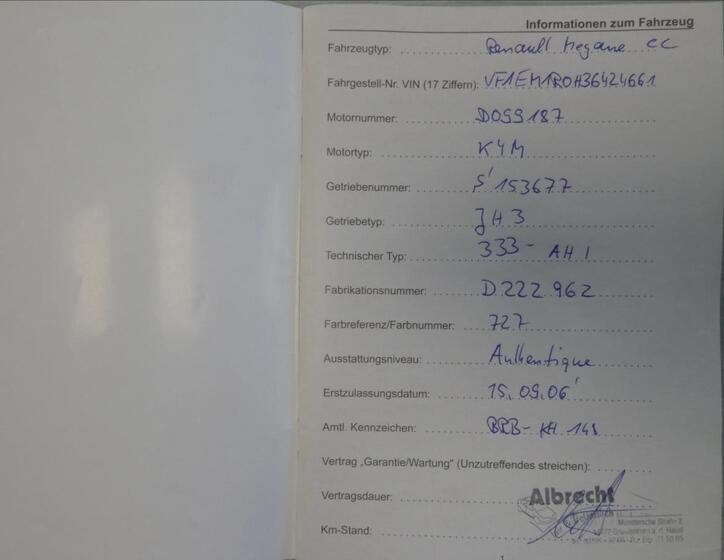 Informationen zum Fahrzeug
Fahrzeugtyp: Renault Megane CC
Fahrgestell-Nr. VIN (17 Ziffern): VF1EM1R0H36424661
Motornummer: D099187
Motortyp: K4M
Getriebenummer: S'153677
Getriebetyp: JH3
Technischer Typ: 333- AH1
Fabrikationsnummer: D.222.962
Farbreferenz/Farbnummer: 727
Ausstattungsniveau: Authentique
Erstzulassungsdatum: 15.09.06
Amtl. Kennzeichen: BRB-KH 148
Vertrag „Garantie/Wartung" (Unzutreffendes streichen):
Vertragsdauer: Albrecht
Km-Stand:
1